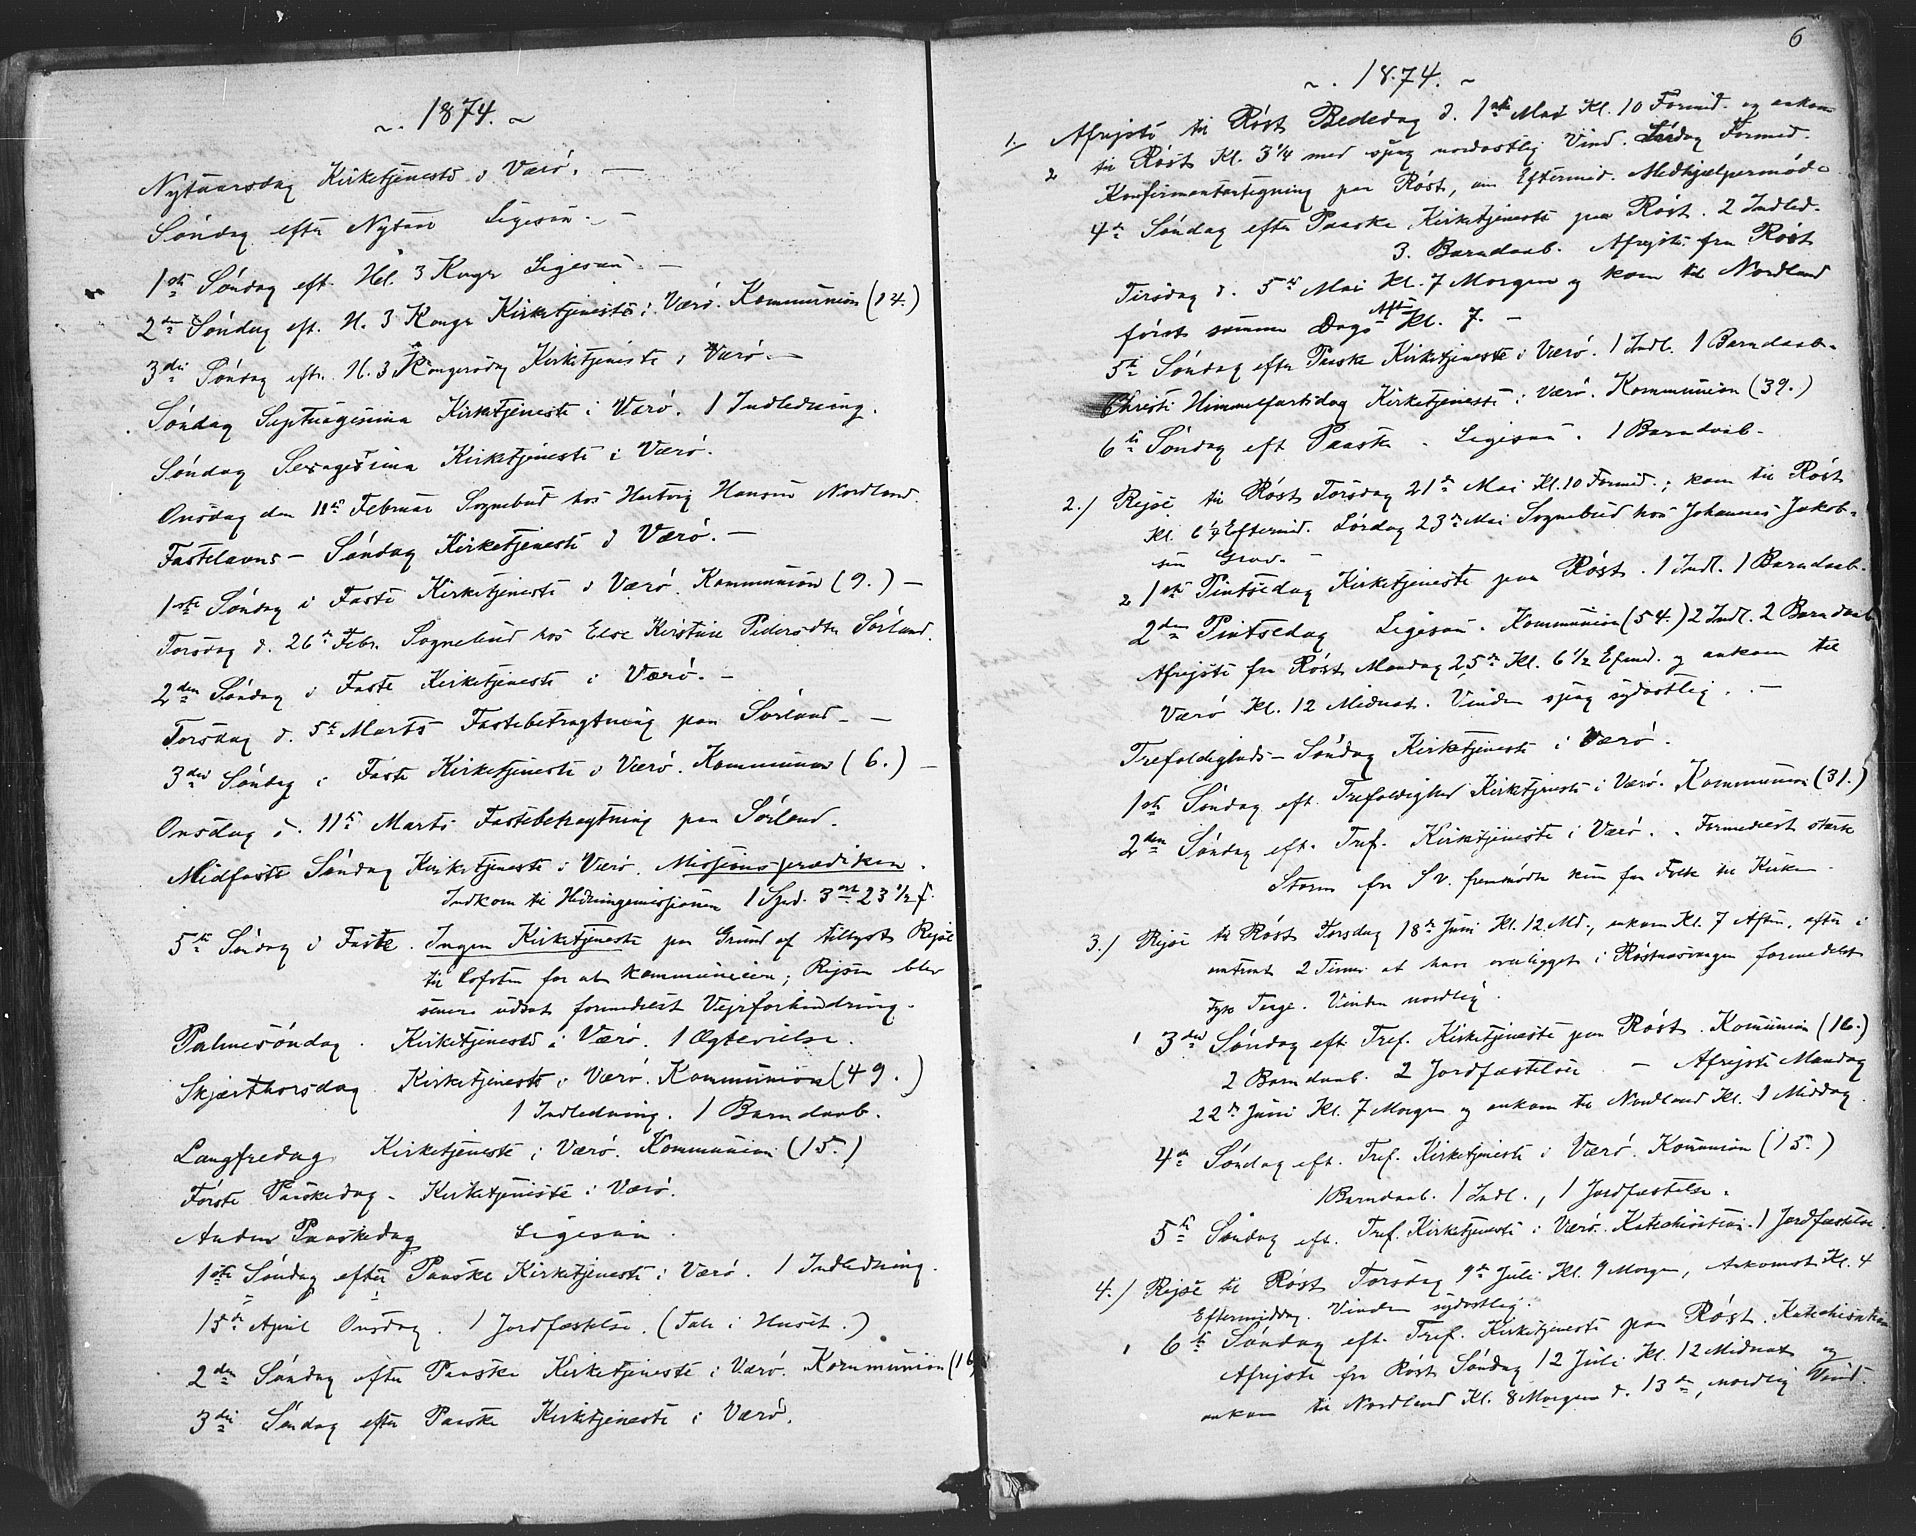 ~. 1874. ~
Nytaarsdag Kirketjeneste i Værö. —
Söndag efter Nytaar Ligesaa. —
1ste Söndag eft. Hel. 3 Konger Ligesaa. —
2den Söndag eft. H. 3 Konger Kirketjeneste i Værö. Kommunion (14.)
3die Söndag eft. H. 3 Kongersdag Kirketjeneste i Værö. —
Söndag Septuagesima Kirketjeneste i Værö. 1 Indledning.
Söndag Sexagesima Kirketjeneste i Værö.
Onsdag den 11te Februar Sognebud hos Hartvig Hansen Nordland.
Fastelavns-Söndag Kirketjeneste i Værö. —
1ste Söndag i Faste Kirketjeneste i Værö. Kommunion (9.) —
Torsdag d. 26de Febr. Sognebud hos Else Kirstine Pedersdtr Sörland.
2den Söndag i Faste Kirketjeneste i Værö. —
Torsdag d. 5te Marts Fastebetragtning paa Sörland. —
3die Söndag i Faste Kirketjeneste i Værö. Kommunion (6.) —
Onsdag d. 11te Marts Fastebetragtning paa Sörland.
Midfaste Söndag Kirketjeneste i Værö. Missionsprædiken.
Indkom til Hedningemissionen 1 Spd. 3 ort 23 1/2 ſ.
5te Söndag i Faste. Ingen Kirketjeneste paa Grund af tilbgst Rejse
til Lofoten for at kommunicere; Rejsen blev
senere udsat formedelst Vejrforhindring.
Palmesöndag. Kirketjeneste i Værö. 1 Ægtevielse.
Skjærthorsdag Kirketjeneste i Værö. Kommunion (49.)
1 Indledning. 1 Barndaab.
Langfredag Kirketjeneste i Værö. Kommunion (15.)
Förste Paaskedag - Kirketjeneste i Værö.
Anden Paaskedag Ligesaa.
1ste Söndag efter Paaske Kirketjeneste i Værö. 1 Indledning.
15de April Onsdag. 1 Jordfæstelse. (Tale i Huset.)
2den Söndag efter Paaske Kirketjeneste i Værö. Kommunion (16
3die Söndag efter Paaske Kirketjeneste i Værö.
6
~. 1874. ~
1. Afrejste til Röst Bededag d. 1ste Mai Kl. 10 Formid. og ankom
til Röst Kl. 3 1/4 med spag nordostlig Vind. Lördag Formid.
2 Konfirmantantegning paa Röst, om Eftermid. Medhjælpermöde
4de Söndag efter Paaske Kirketjeneste paa Röst. 2 Indled.
3. Barndaab. Afrejste fra Röst
Tirsdag d. 5te Mai Kl. 7 Morgen og kom til Nordland
först samme Dags Aften Kl. 7. —
5te Söndag efter Paaske Kirketjeneste i Værö. 1 Indl. 1 Barndaab.
Christi Himmelfartsdag Kirketjeneste i Værö. Kommunion (39.)
6te Söndag eft Paaske. Ligesaa. 1 Barndaab.
2.) Rejse til Röst Torsdag 21de Mai Kl. 10 Formid.; kom til Röst
Kl. 6 1/4 Eftermid. Lördag 23de Mai Sognebud hos Johannes Jakob-
sen —
2 1ste Pintsedag Kirketjeneste paa Röst. 1 Indl. 1 Barndaab.
2den Pintsedag Ligesaa. Kommunion (54.) 2 Indl. 2 Barndaab
Afrejste fra Röst Mandag 25de Kl. 6 1/2 Efmd. og ankom til
Værö Kl. 12 Midnat. Vinden spag sydostlig. —
Trefoldigheds-Söndag Kirketjeneste i Værö.
1ste Söndag eft. Trefoldighed Kirketjeneste i Værö. Kommunion (31.)
2den Söndag eft. Tref. Kirketjeneste i Værö. Formedelst stærk
Storm fra S V. fremmödte kun faa Folk til Kirken.
3.) Rejse til Röst Torsdag 18de Juni Kl. 12 Md., ankom Kl. 7 Aften, efter i
omtrent 2 Timer at have overligget i Röstnæsvaagen formedelst
tyk Taage. Vinden nordlig.
1 3die Söndag eft Tref. Kirketjeneste paa Röst. Komunion (16.)
2 Barndaab. 2 Jordfæstelser. — Afrejste Mandag
22de Juni Kl. 7 Morgen og ankom til Nordland Kl. 1 Middag.
4de Söndag eft. Tref. Kirketjeneste i Værö. Komunion (15.)
1 Barndaab. 1 Indl., 1 Jordfæstelse.
5te Söndag eft. Tref. Kirketjeneste i Værö. Katechisation. 1 Jordfæstelse.
4.) Rejse til Röst Torsdag 9de Juli Kl. 9 Morgen, Ankomst Kl. 4
Eftermiddag. Vinden sydostlig.
1 6te Söndag eft. Tref. Kirketjeneste paa Röst. Katechisation
Afrejste fra Röst Söndag 12 Juli Kl. 12 Midnat og
ankom til Nordland Kl. 8 Morgen d. 13de, nordlig Vind.